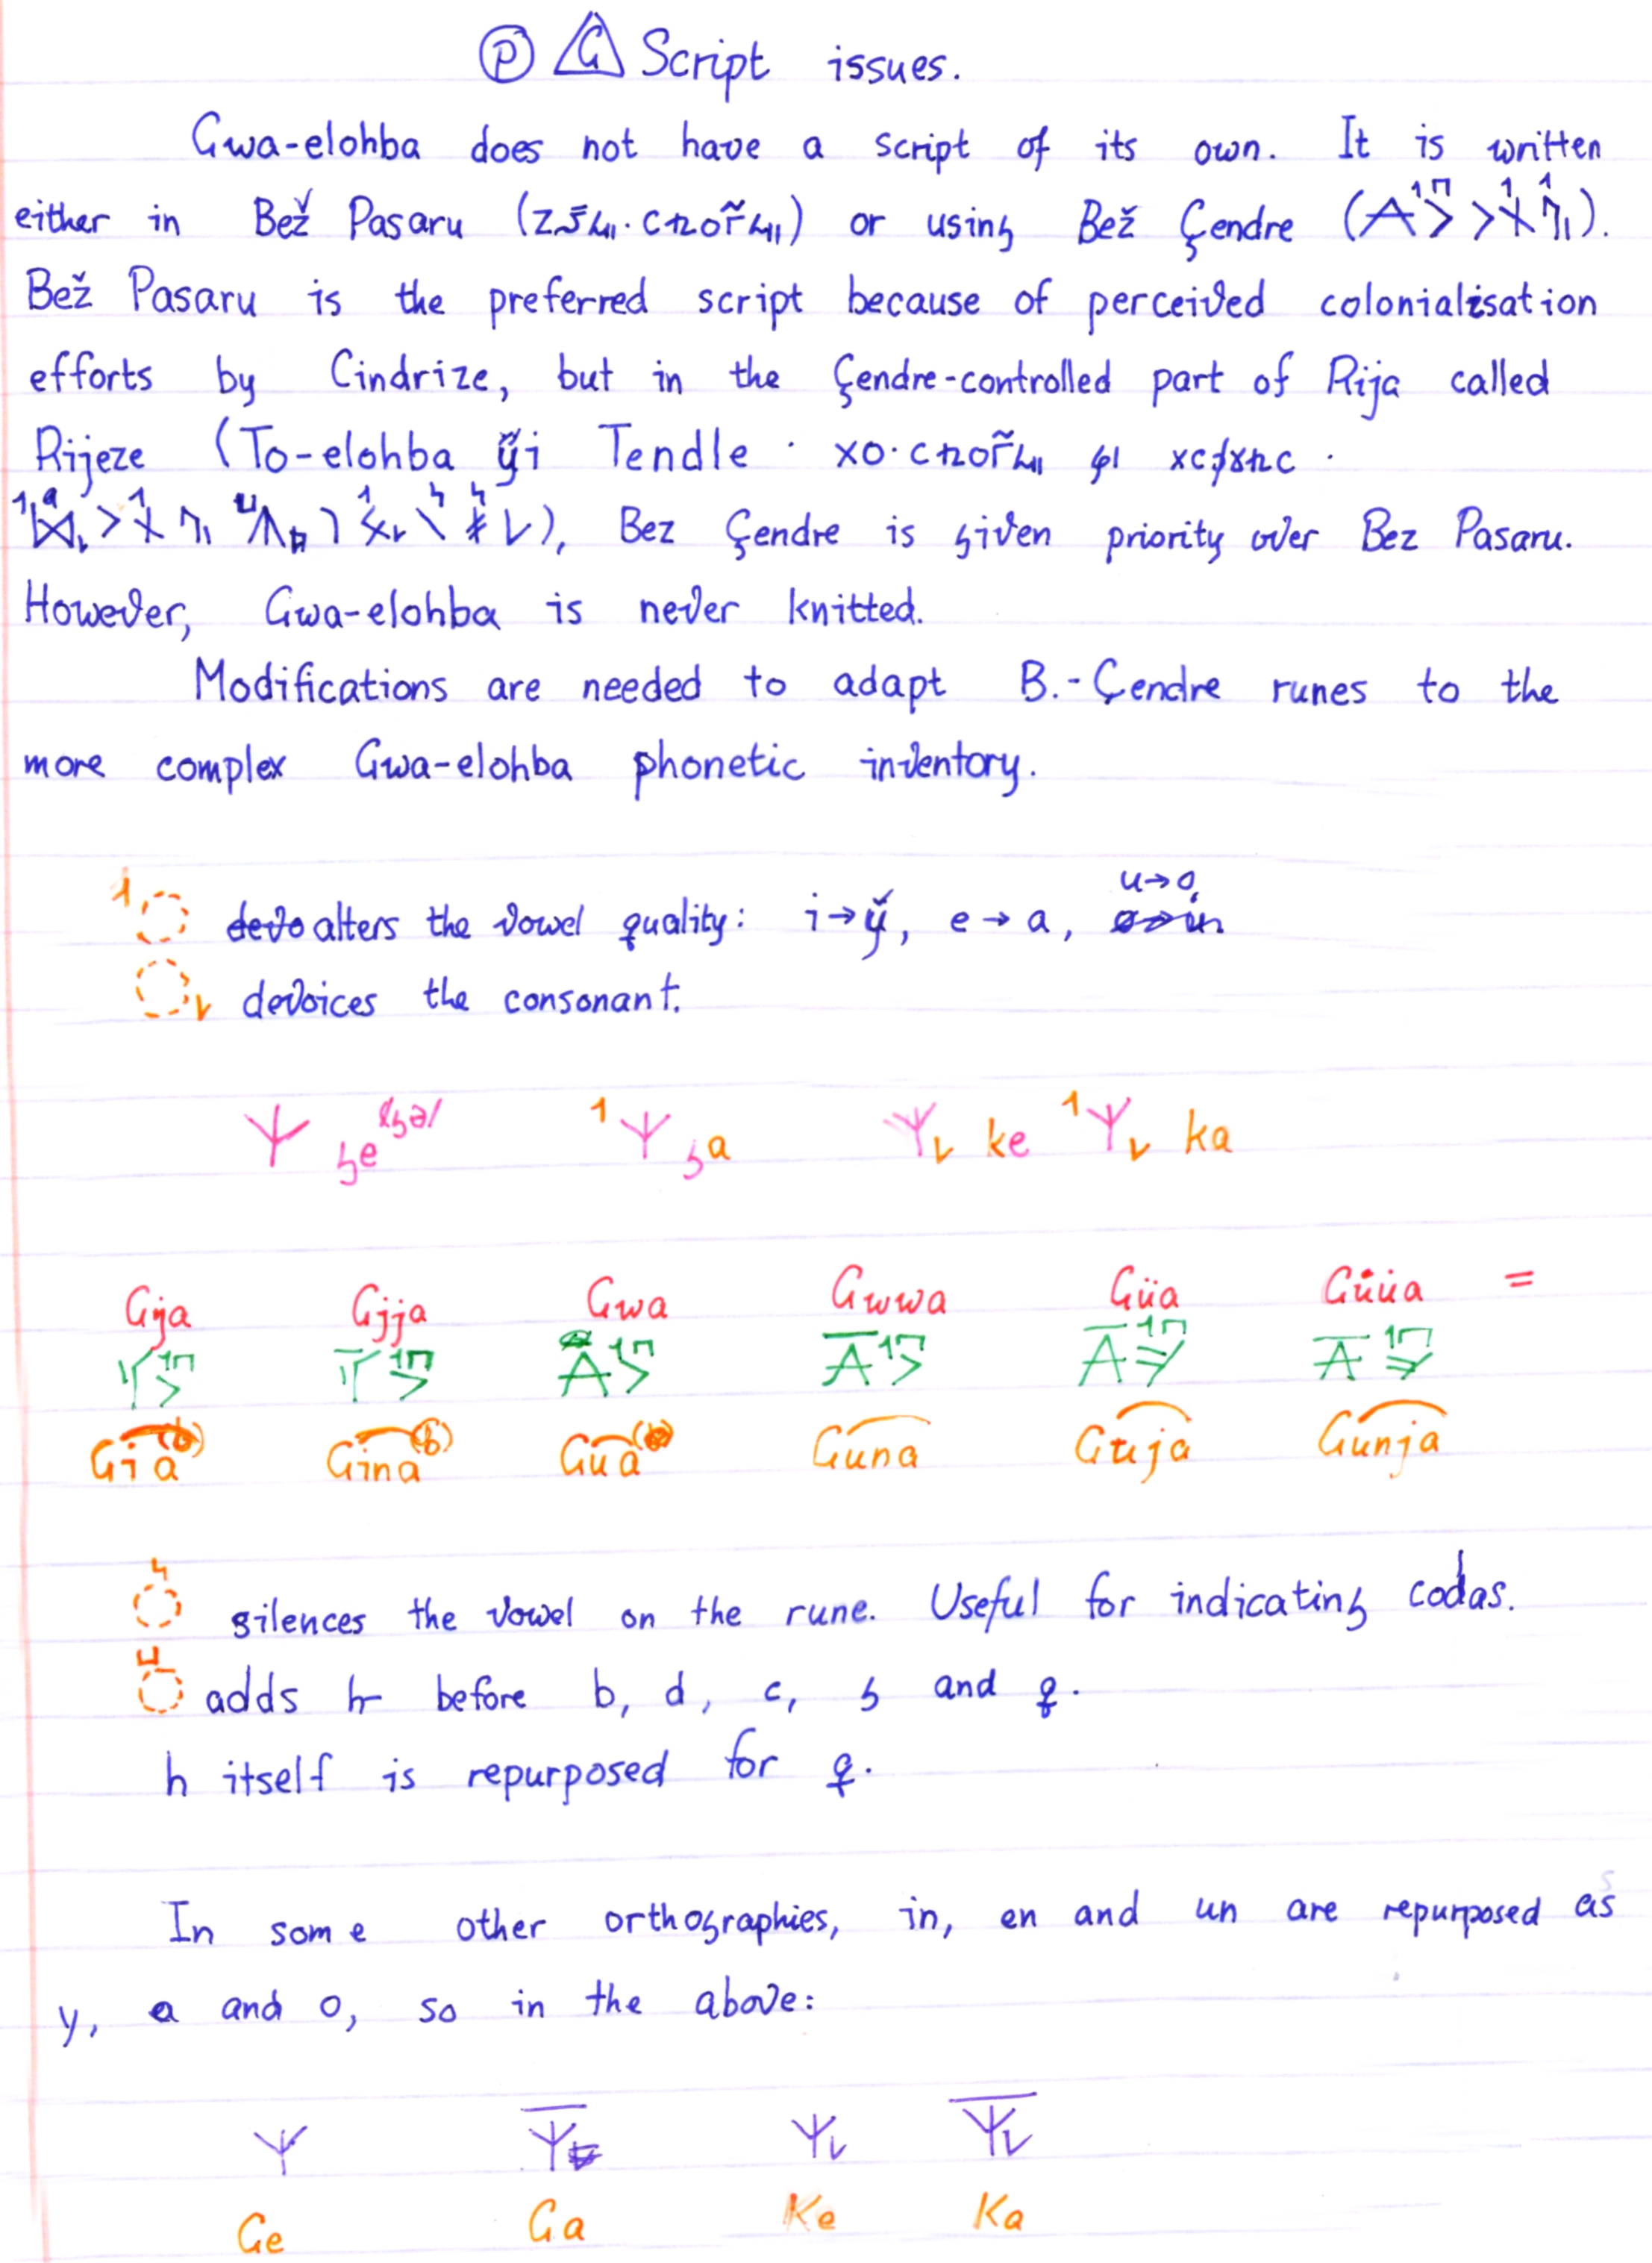 Ⓟ G Script issues.
Gwa-elohba does not have a script of its own. It is written
either in Bež Pasaru ( ) or using Bež Çendre ( ).
Bež Pasaru is the preferred script because of perceived colonialisation
efforts by Cindrize, but in the Çendre-controlled part of Rija called
Rijeze (To-elohba ÿi Tendle ·
), Bez Çendre is given priority over Bez Pasaru.
However, Gwa-elohba is never knitted.
Modifications are needed to adapt B.-Çendre runes to the
more complex Gwa-elohba phonetic inventory.
u→o
alters the vowel quality: i→ÿ, e→a,
devoices the consonant.
ge ga ke ka
Gja Gjja Gwa Gwwa Güa Güüa =
Gia Gina Gua Guna Guja Gunja
silences the vowel on the rune. Useful for indicating codas.
adds h- before b, d, c, g and q.
h itself is repurposed for q.
In some other orthographies, in, en and un are repurposed as
y, a and o, so in the above:
Ge Ga Ke Ka